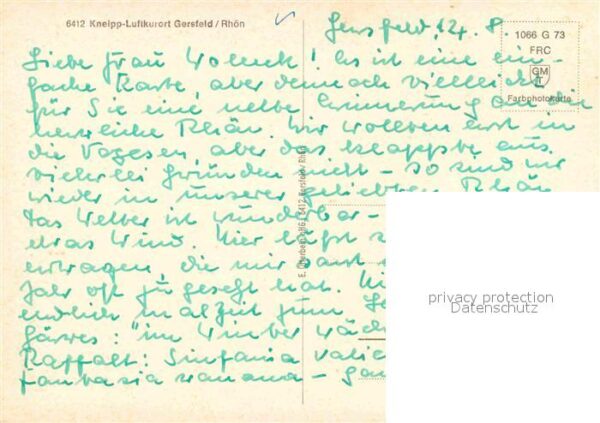 6412 Kneipp-Luftkurort Gersfeld / Rhön
Gersfeld, 14. 8.
1066 G 73
FRC
GM
Farbphotokarte
Liebe Frau ! Es ist eine ein-
fache Karte aber dennoch vielleicht
für Sie eine nette Erinnerung an die
herrliche Rhön. Wir wollten erst in
die Vogesen, aber das klappte aus
vielerlei Gründen nicht - so sind wir
wieder in unserer geliebten Rhön
Das Wetter ist wunderbar -
etwas Wind. Hier läßt
ertragen, die mir sonst
Jahr oft zu gesetzt hat.
endlich mal Zeit zum
Görres: "im Winter wäch
Raffalt: Sinfonia Vatic
Fantasia romana -
E. 6412 Gersfeld/Rhön
privacy protection
Datenschutz